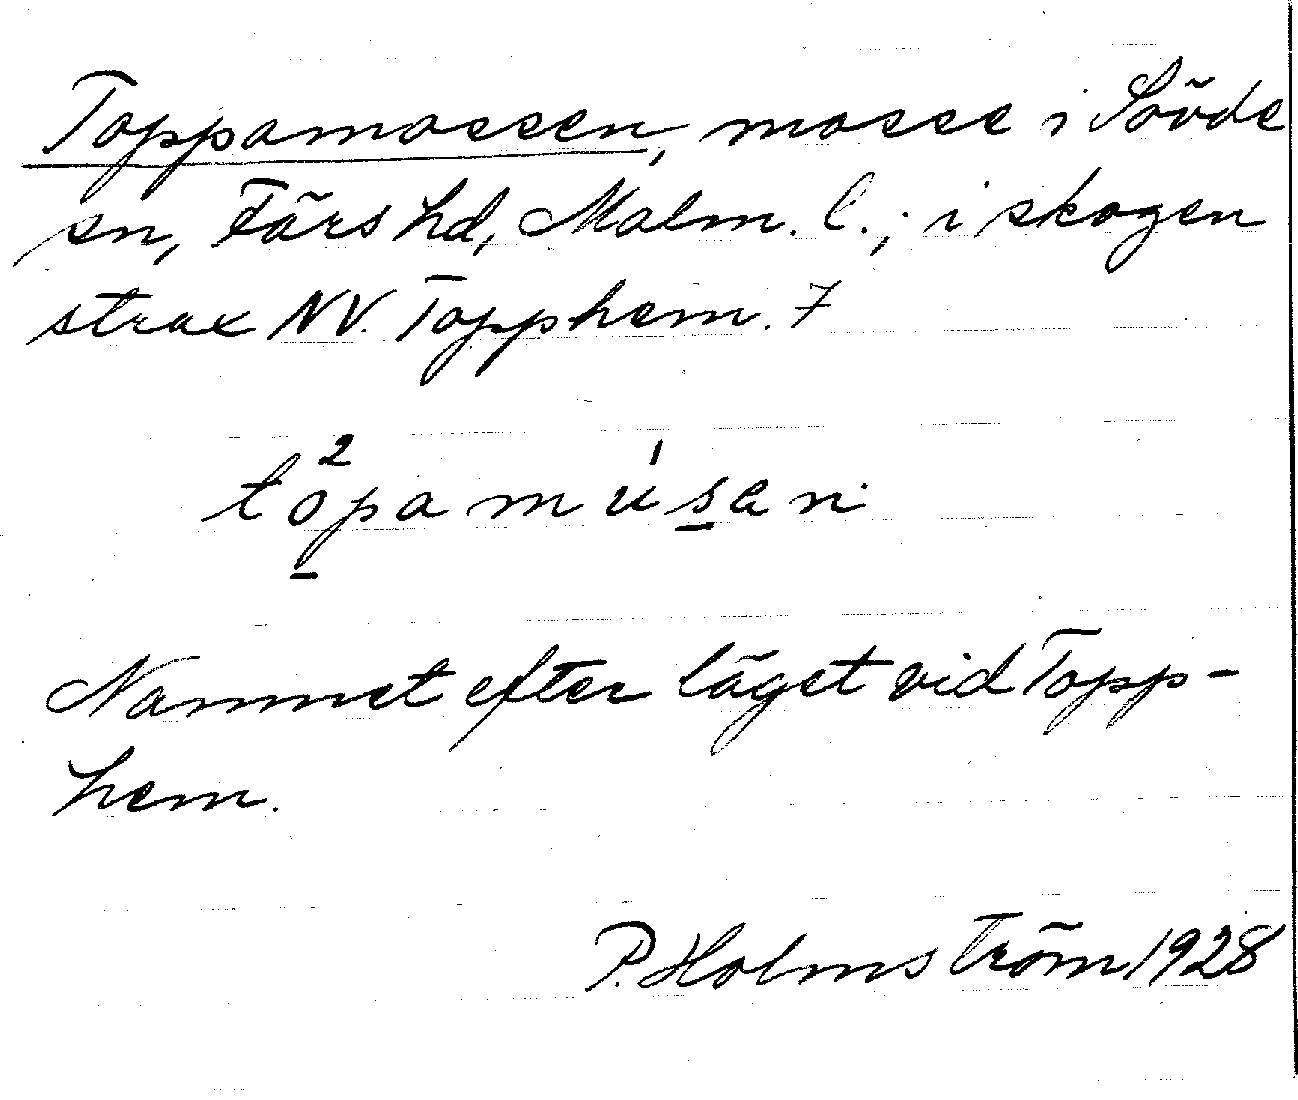 Toppamossen, mosse i Sövde
sn, Färs hd, Malm. l.; i skogen
strax NV. Topphem. 7
to²pamúsan
Namnet efter läget vid Topp-
hem.
P. Holmström 1928